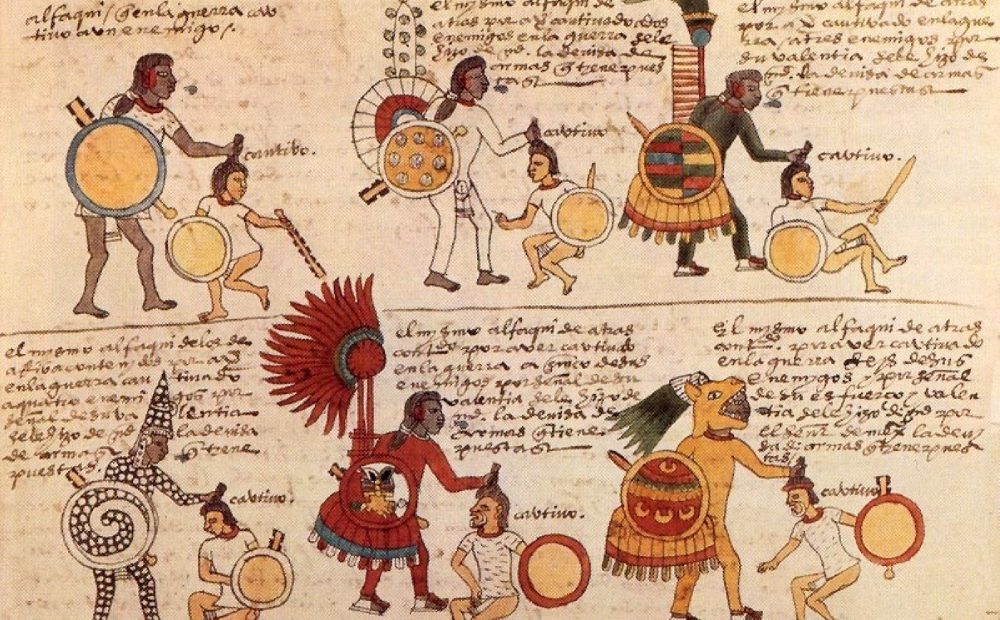 alfaqui / q̃ en la guerra cau
tivo a un enemigo /.
cautivo.
el mysmo alfaqui de
atras por a cautivado dos
enemigos en la guerra se le
hizo de md. la devisa de
armas q̃ tiene pues
tas /
cautivo
el mysmo alfaqui de atras
por a cautivado en la gue
rra / a tres enemigos / por
su valentia se le hizo de
md. la devisa de armas
q̃ tiene puestas /
cautivo.
el mismo alfaqui de los de
atras contenydos por
en la guerra cau tivado
a quatro enemi gos por
señal de su va lentia
se le hizo de md la devisa
de armas q̃ tiene
puestas /
cautivo.
el mysmo alfaqui de atras
contdo por aver cautivado
en la guerra a cinco de sus
enemigos por señal de su
valentia se le hizo de
md. la devisa de
armas q̃ tiene
puestas /
cautivo.
El mismo alfaqui de atras
contdo / por aver cautivado
en la guerra seys de sus
enemigos / y por señal
de su esfuerço y valen
tia se le hizo de md por
el señor de la devi
sa de armas q̃ tiene pues
tas /
cautivo